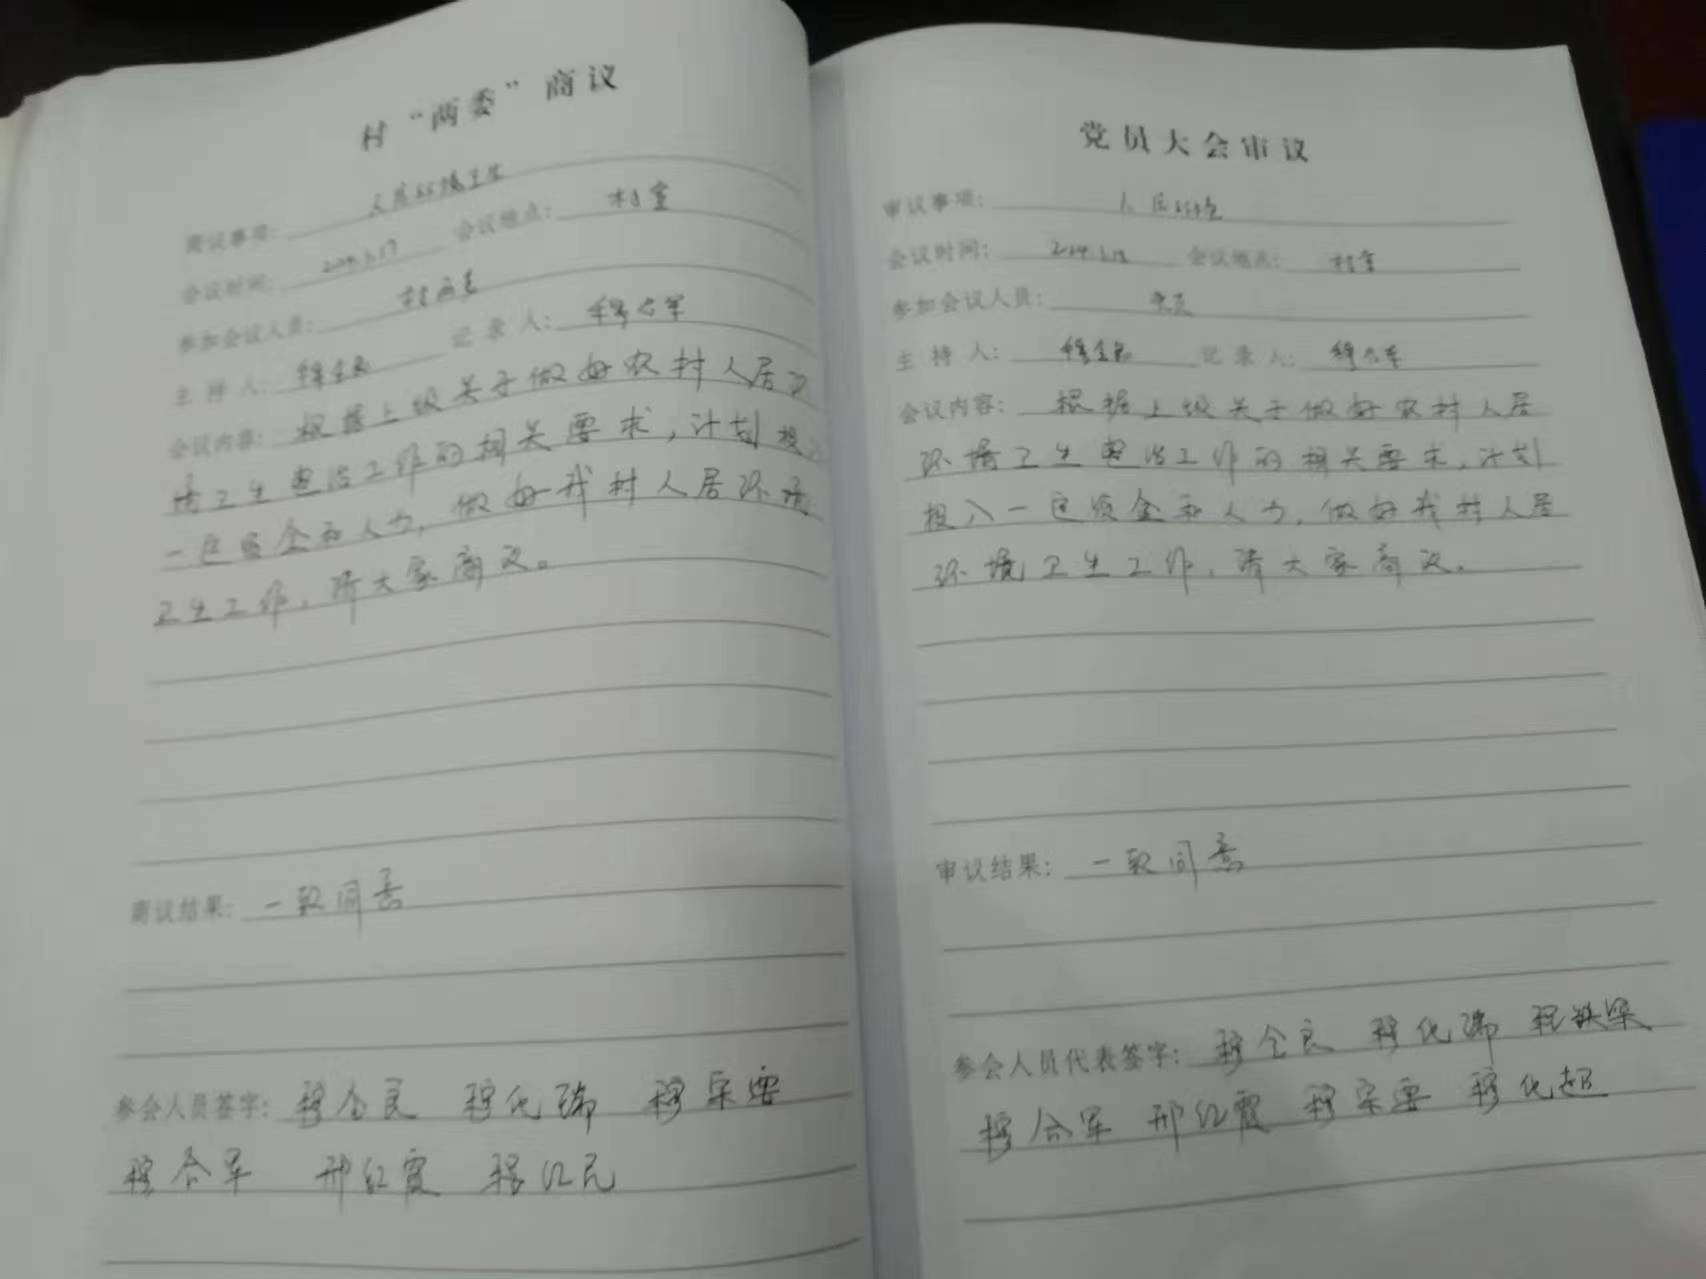 村“两委”商议
商议事项: 人居环境卫生
会议时间: 2024.1.17 会议地点: 村室
参加会议人员: 村两委
主持人: 穆全良 记录人: 穆合军
会议内容: 根据上级关于做好农村人居环
境卫生整治工作的相关要求,计划投入
一定资金和人力,做好我村人居环境
卫生工作,请大家商议。
商议结果: 一致同意
参会人员签字: 穆全良 穆化瑞 穆宋要
穆合军 邢红霞 程红民
党员大会审议
审议事项: 人居环境
会议时间: 2024.1.18 会议地点: 村室
参加会议人员: 党员
主持人: 穆全良 记录人: 穆合军
会议内容: 根据上级关于做好农村人居
环境卫生整治工作的相关要求,计划
投入一定资金和人力,做好我村人居
环境卫生工作,请大家商议。
审议结果: 一致同意
参会人员代表签字: 穆全良 穆化瑞 程铁梁
穆合军 邢红霞 穆宋要 穆化超